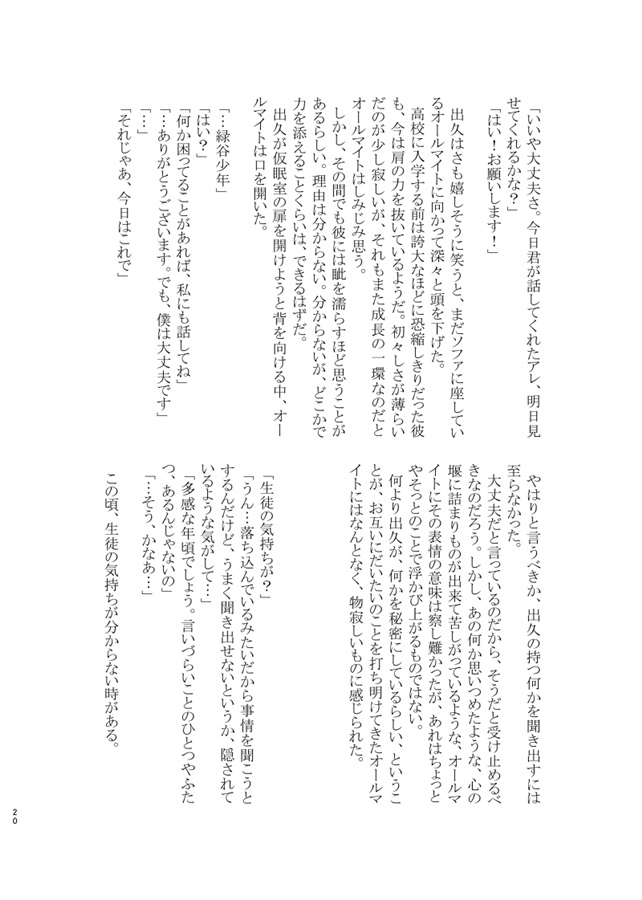 「いいや大丈夫さ。今日君が話してくれたアレ、明日見
せてくれるかな？」
「はい！お願いします！」
出久はさも嬉しそうに笑うと、まだソファに座してい
るオールマイトに向かって深々と頭を下げた。
高校に入学する前は誇大なほどに恐縮しきりだった彼
も、今は肩の力を抜いているようだ。初々しさが薄らい
だのが少し寂しいが、それもまた成長の一環なのだと
オールマイトはしみじみ思う。
しかし、その間でも彼には眦を濡らすほど思うことが
あるらしい。理由は分からない。分からないが、どこかで
力を添えることくらいは、できるはずだ。
出久が仮眠室の扉を開けようと背を向ける中、オー
ルマイトは口を開いた。
「…緑谷少年」
「はい？」
「何か困ってることがあれば、私にも話してね」
「…ありがとうございます。でも、僕は大丈夫です」
「…」
「それじゃあ、今日はこれで」
やはりと言うべきか、出久の持つ何かを聞き出すには
至らなかった。
大丈夫だと言っているのだから、そうだと受け止めるべ
きなのだろう。しかし、あの何か思いつめたような、心の
堰に詰まりものが出来て苦しがっているような、オールマ
イトにその表情の意味は察し難かったが、あれはちょっと
やそっとのことで浮かび上がるものではない。
何より出久が、何かを秘密にしているらしい、というこ
とが、お互いにだいたいのことを打ち明けてきたオールマ
イトにはなんとなく、物寂しいものに感じられた。
「生徒の気持ちが？」
「うん…落ち込んでいるみたいだから事情を聞こうと
するんだけど、うまく聞き出せないというか、隠されて
いるような気がして…」
「多感な年頃でしょう。言いづらいことのひとつやふた
つ、あるんじゃないの」
「…そう、かなあ…」
この頃、生徒の気持ちが分からない時がある。
20